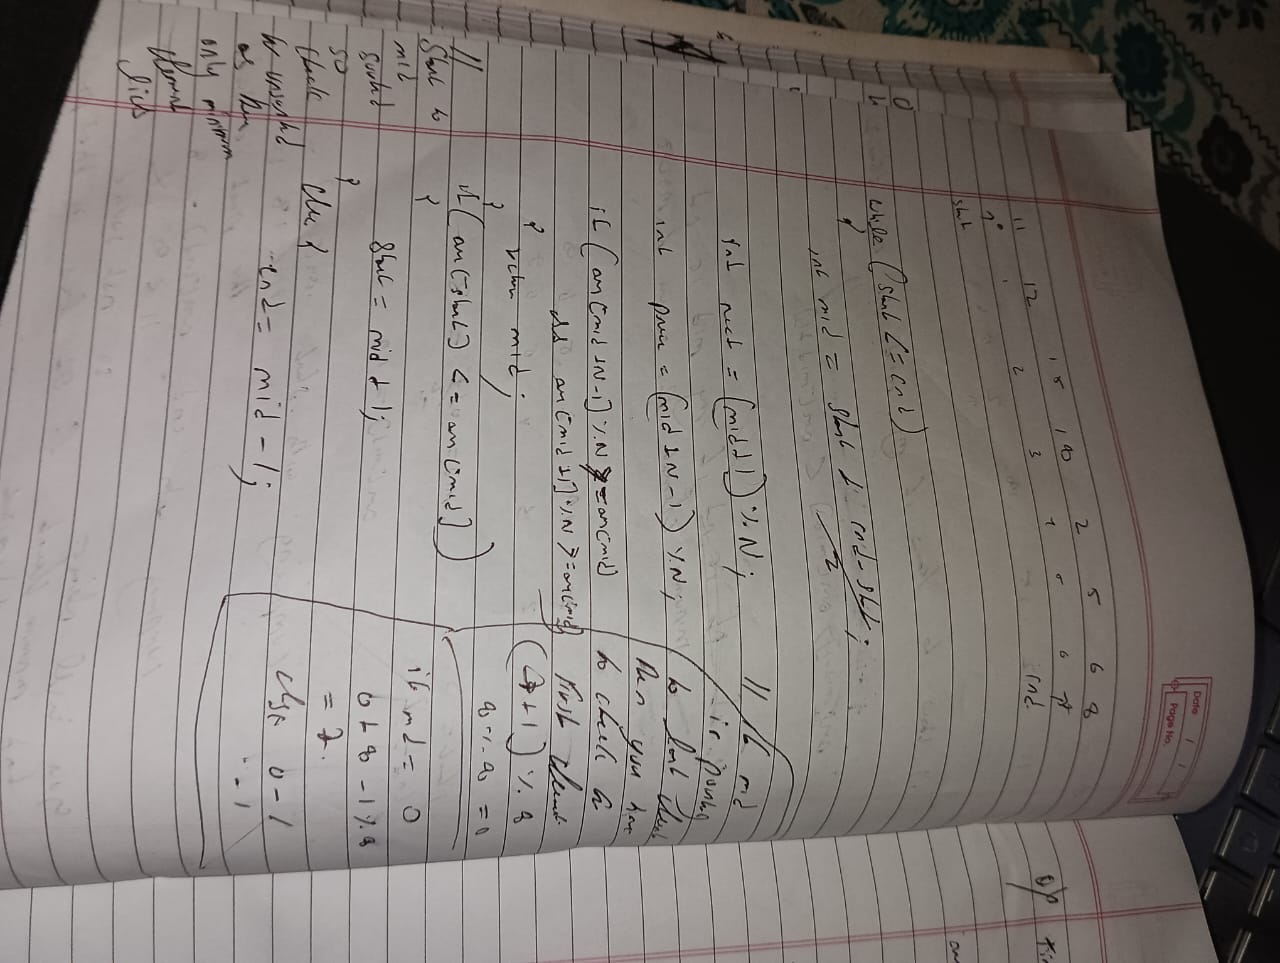 Date / /
Page No.
11 12 15 18 2 5 6 8
0 1 2 3 4 5 6 7
start
end
while (start <= end)
{
int mid = start + end-start/2;
int next = (mid+1)%N;
int prev = (mid+N-1)%N;
if (arr[mid+N-1]%N >= arr[mid]
&& arr[mid+1]%N >= arr[mid])
{
return mid;
}
if (arr[start] <= arr[mid])
{
start = mid+1;
}
else {
end = mid-1;
// if mid
is pointing
to last element
then you have
to check for
first element
(7+1)%8
8%8 = 0
if mid = 0
0+8-1%8
= 7
else 0-1
-1
//
start to
mid
sorted
so
check
in unsorted
as
only minimum
element
lies
O/P